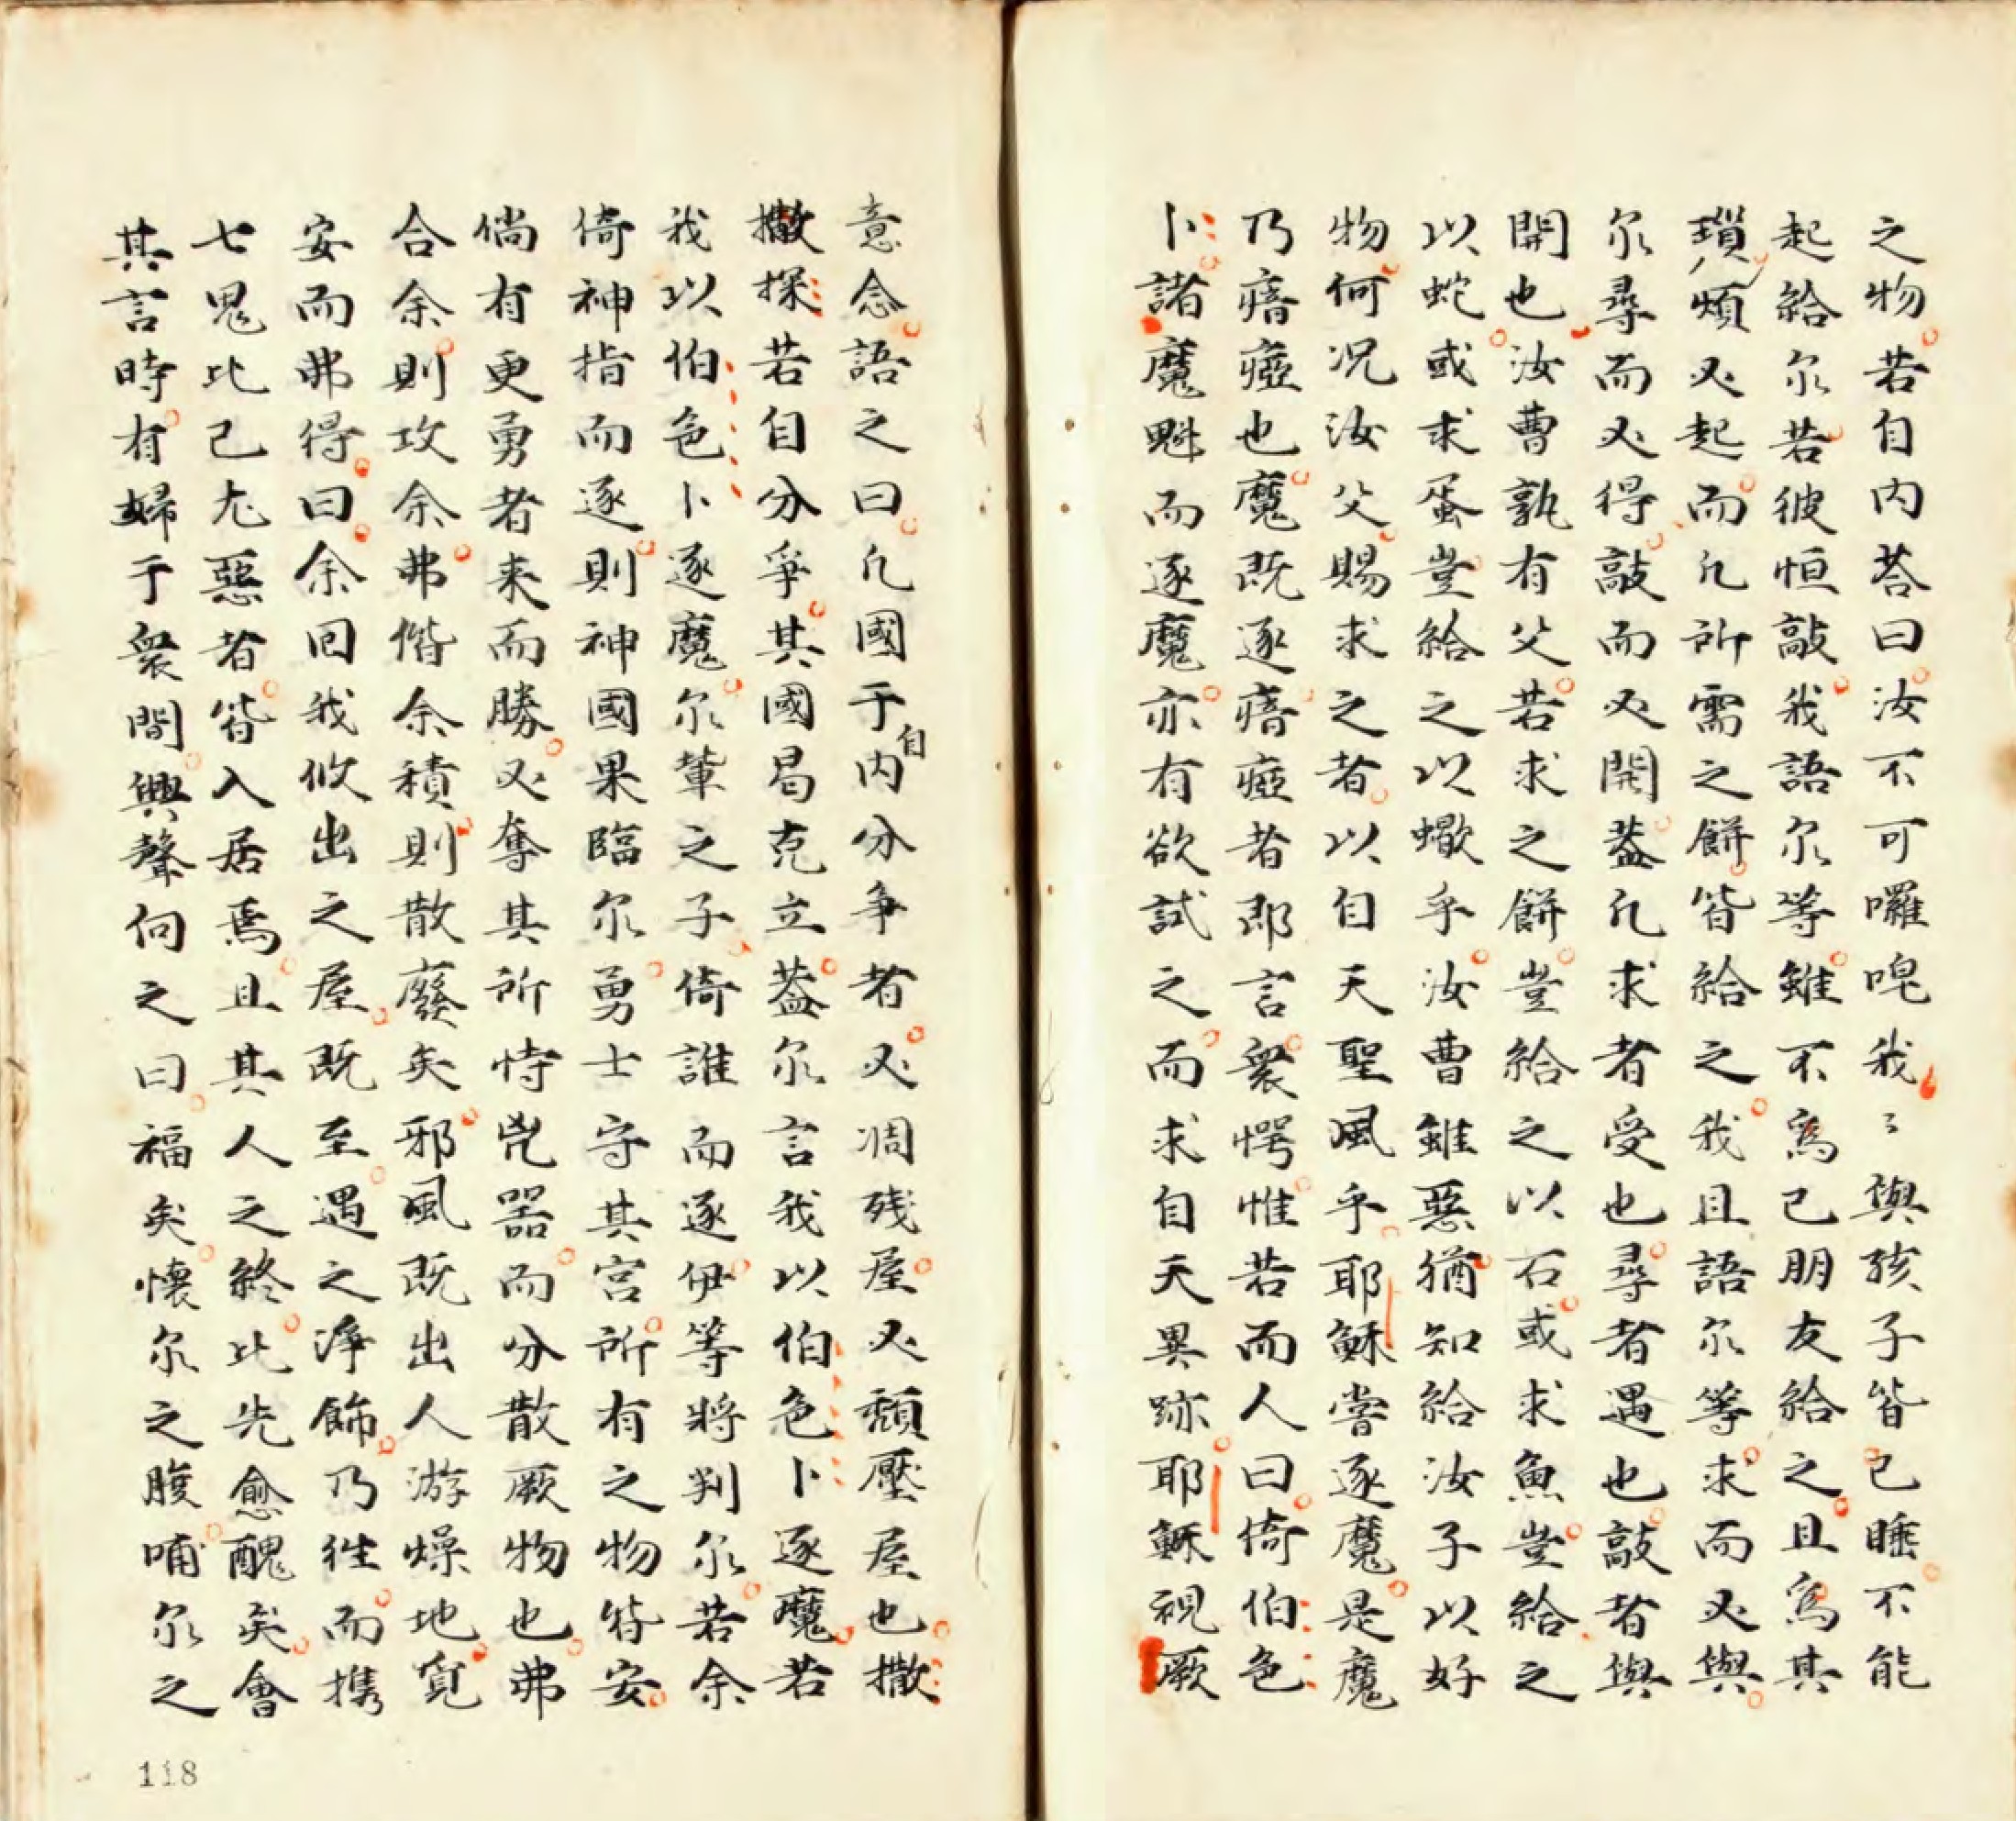 之物若自内荅曰汝不可囉唣我〻與孩子皆已睡不能
起給尔若彼恒敲我語尔等雖不為己朋友給之且為其
瑣煩必起而凢所需之餅皆給之我且語尔等求而必與
尔尋而必得敲而必開葢凢求者受也尋者遇也敲者與
開也汝曹孰有父若求之餅豈給之以石或求魚豈給之
以蛇或求蛋豈給之以蠍乎汝曹雖惡猶知給汝子以好
物何况汝父賜求之者以自天聖風乎耶穌嘗逐魔是魔
乃瘖瘂也魔既逐瘖瘂者即言衆愕惟若而人曰倚伯色
卜諸魔魁而逐魔亦有欲試之而求自天異跡耶穌視厥
意念語之曰凢國于自内分争者必凋残屋必頹壓屋也撒
撒探若自分爭其國曷克立葢尔言我以伯色卜逐魔若
我以伯色卜逐魔尔輩之子倚誰而逐伊等將判尔若余
倚神指而逐則神國果臨尔勇士守其宫所有之物皆安
倘有更勇者来而勝必奪其所恃兠器而分散厥物也弗
合余則攻余弗偕余積則散廢矣邪風既出人游燥地寛
安而弗得曰余回我攸出之屋既至遇之淨飾乃徃而携
七鬼比己尢惡者皆入居焉且其人之終比先愈醜矣會
其言時有婦于衆間興聲向之曰福矣懷尔之腹哺尔之
118